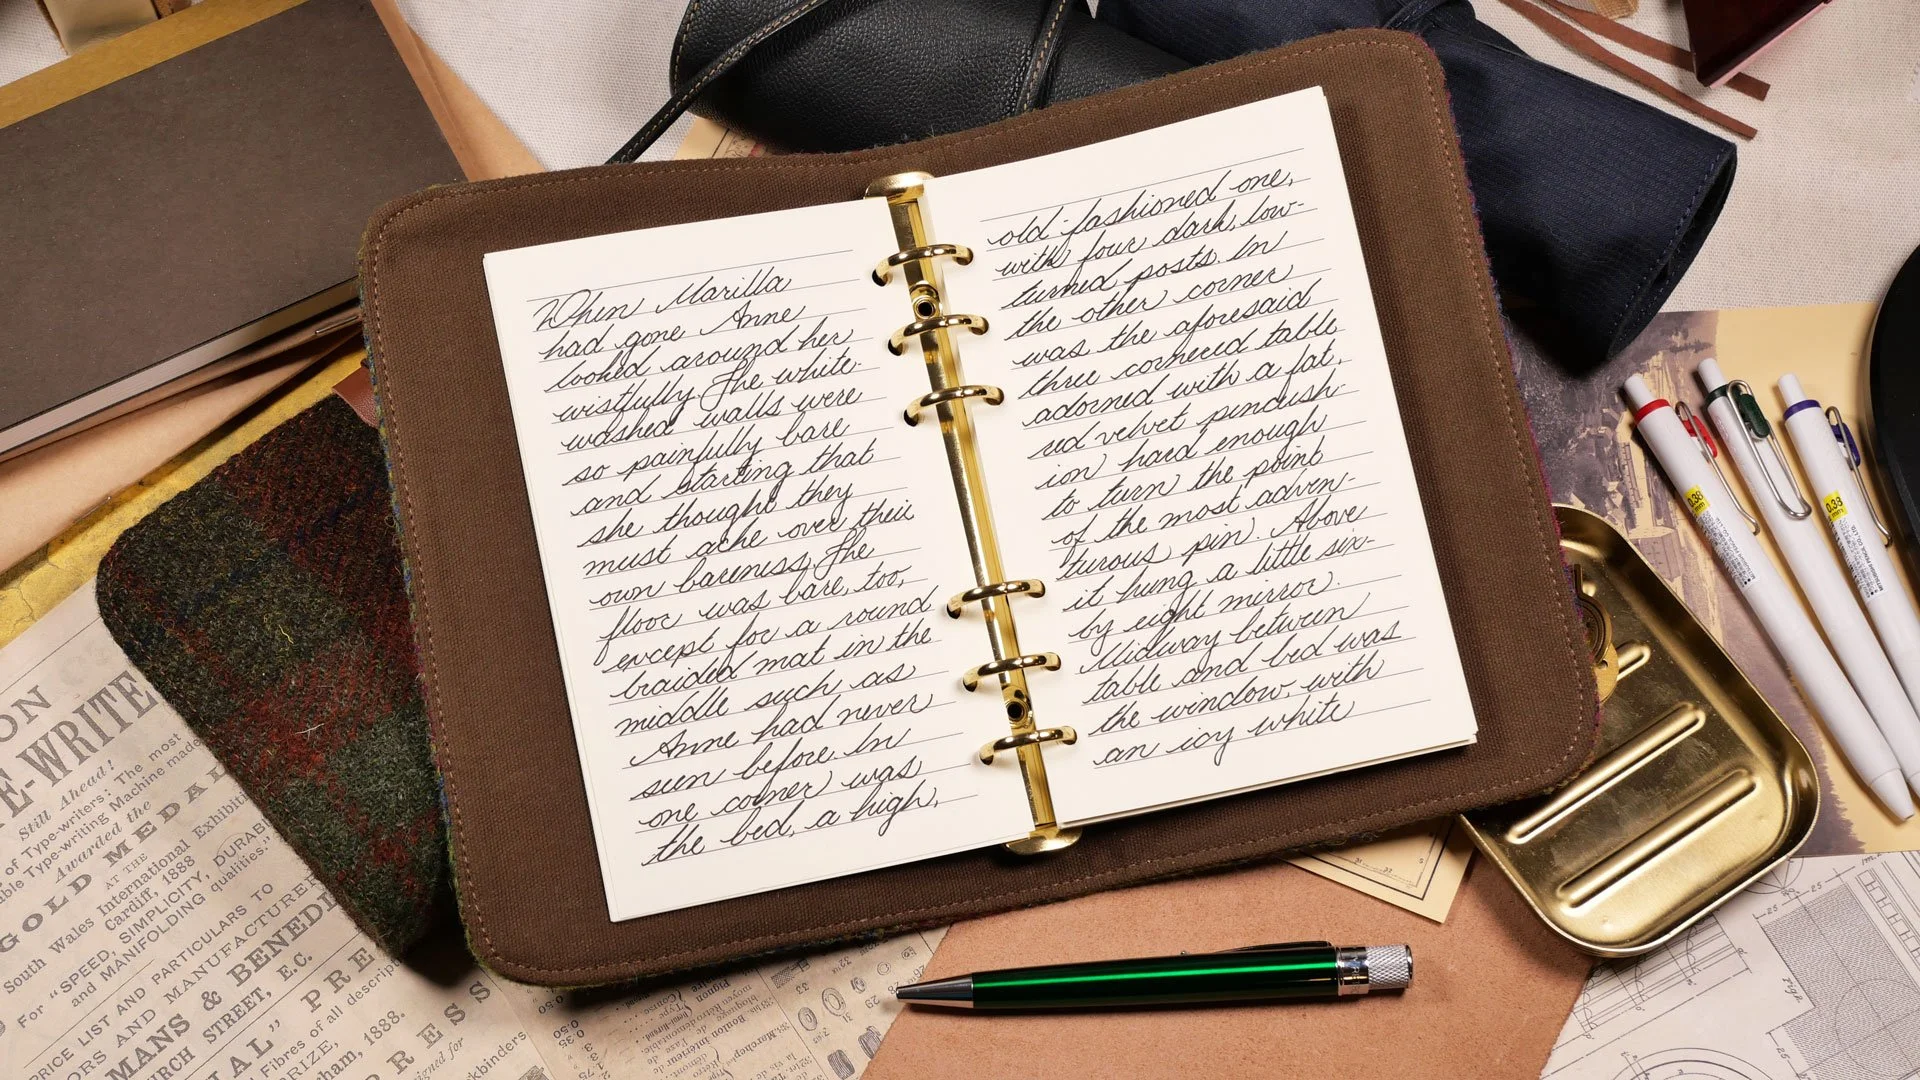 When Marilla
had gone Anne
looked around her
wistfully. The white-
washed walls were
so painfully bare
and starting that
she thought they
must ache over their
own bareness. The
floor was bare, too,
except for a round
braided mat in the
middle such as
Anne had never
seen before. In
one corner was
the bed, a high,
old-fashioned one,
with four dark, low-
turned posts. In
the other corner
was the aforesaid
three cornered table
adorned with a fat,
red velvet pincush-
ion hard enough
to turn the point
of the most adven-
turous pin. Above
it hung a little six-
by eight mirror.
Midway between
table and bed was
the window, with
an icy white
ON
E-WRITE
Still Ahead!
of Type-writers: The most
Type-writing Machine made
Awarded the
GOLD MEDAL
AT THE
South Wales International Exhibit
Cardiff, 1888
For "SPEED, SIMPLICITY, DURAB
and MANIFOLDING qualities."
PRICE LIST AND PARTICULARS TO
ORS AND MANUFACTURER
MANS & BENEDI
CHURCH STREET, E.C.
Fibres of all descript
1888.
0.38
0.38